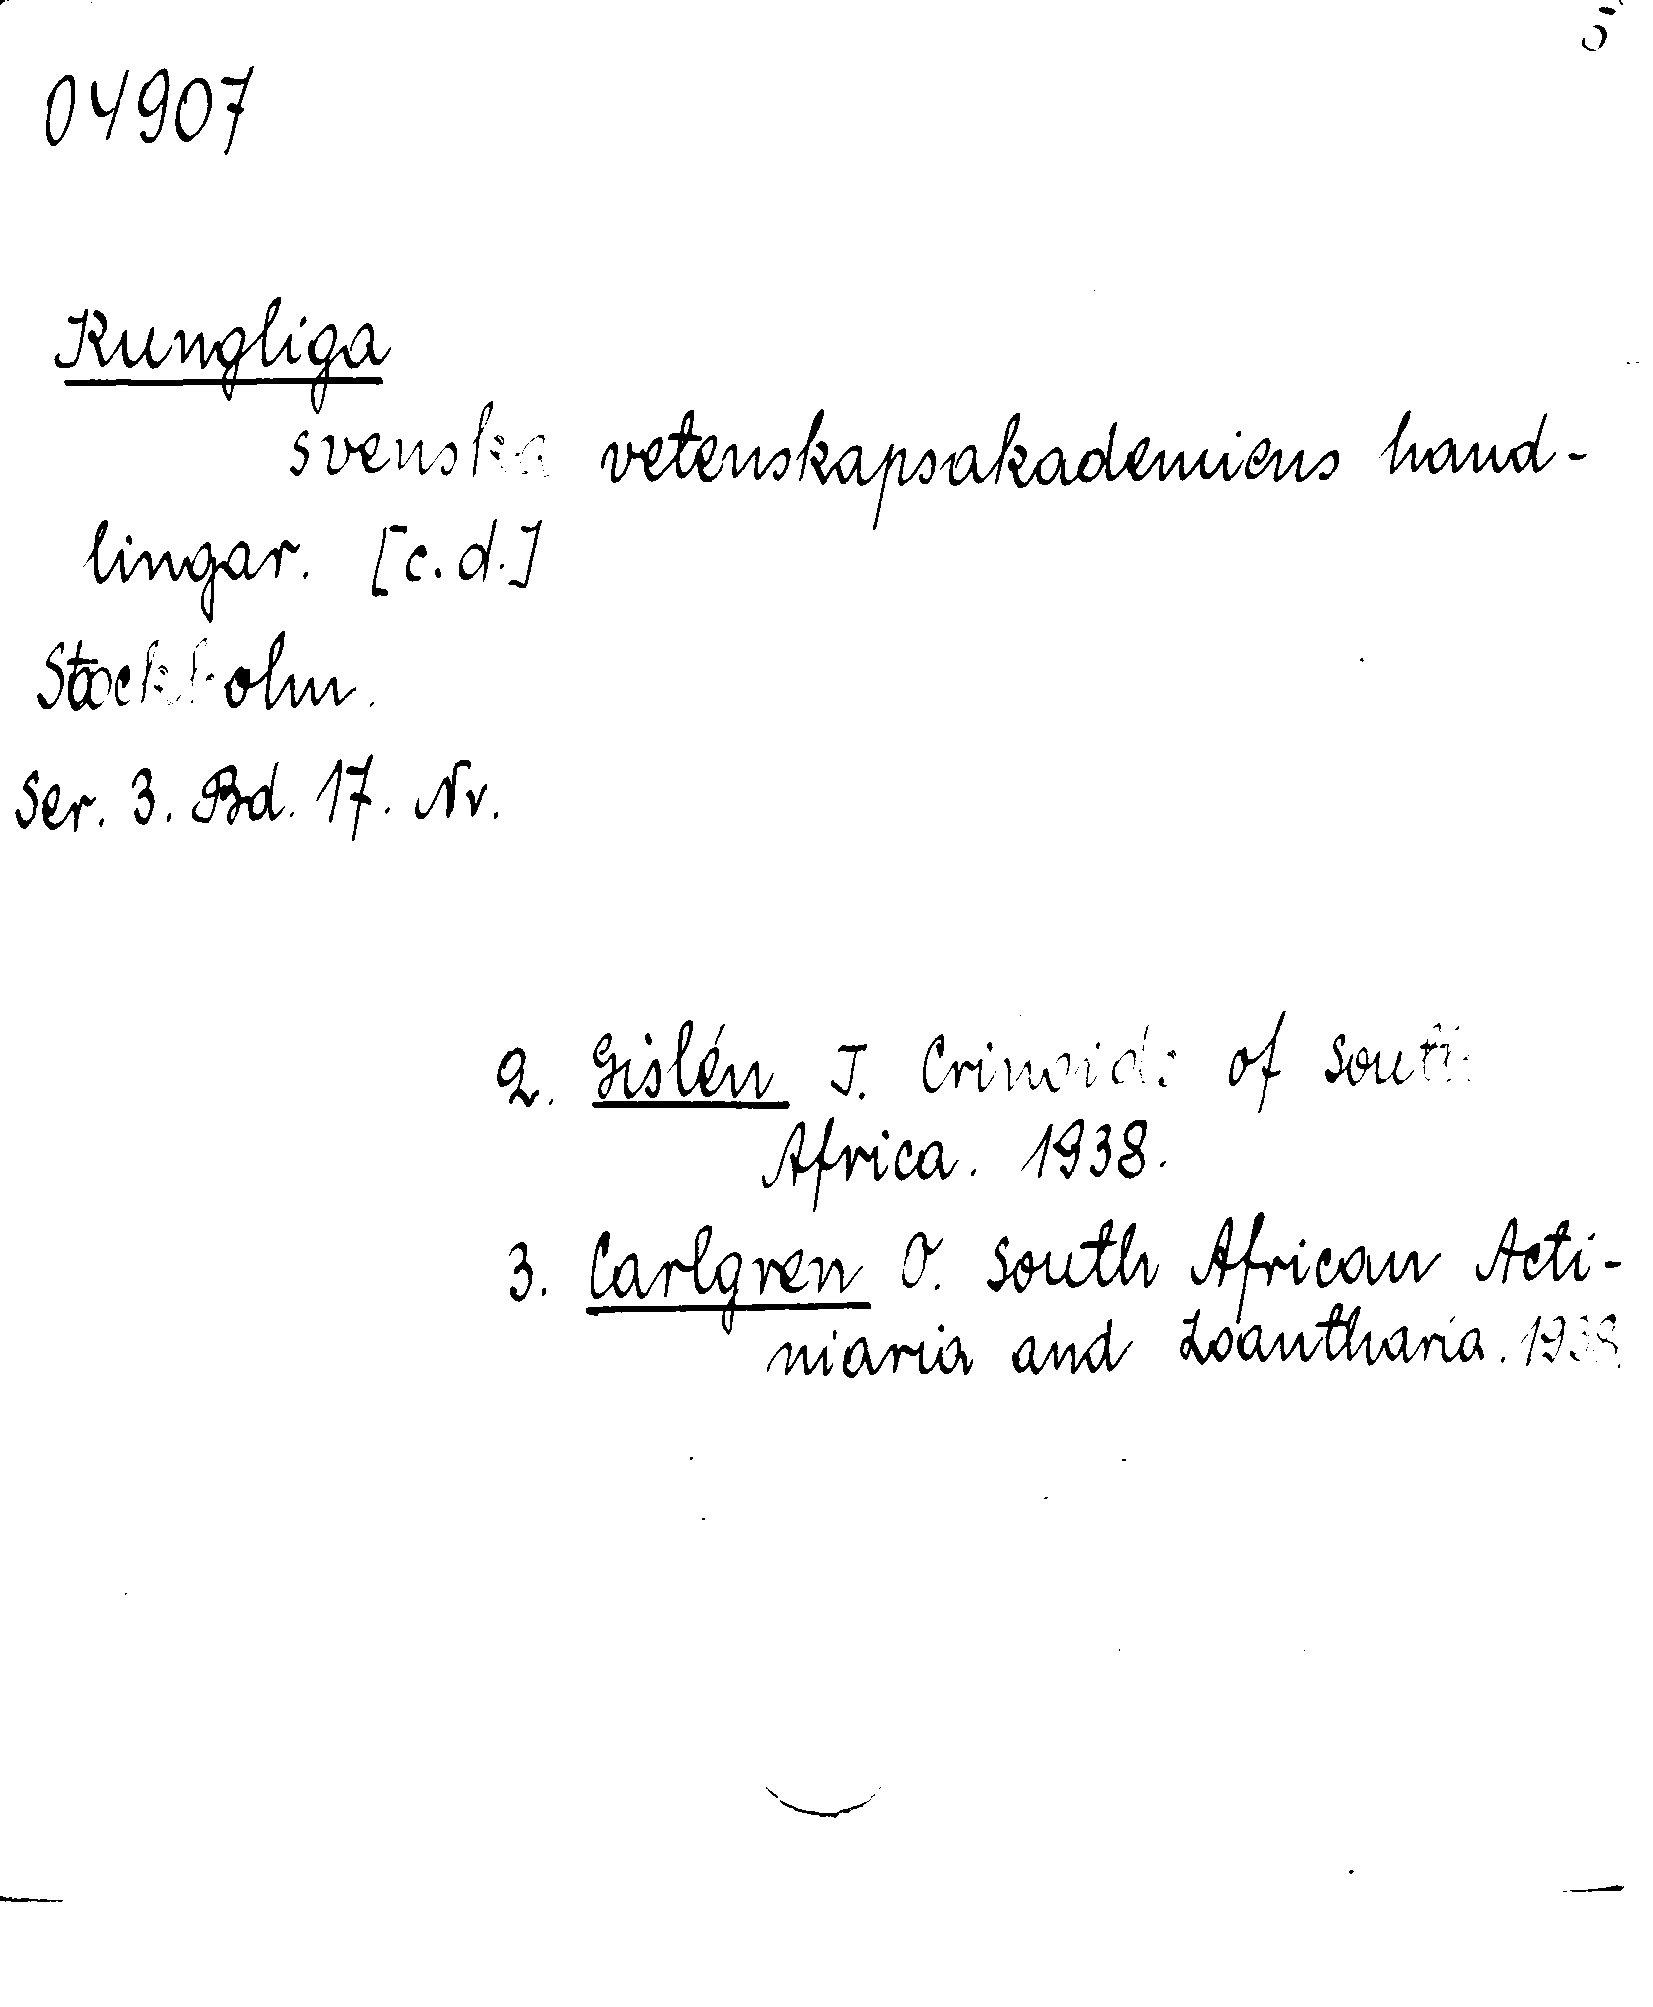 5
04907
Kungliga
svenska vetenskapsakademiens hand-
lingar. [c.d.]
Stockholm.
Ser. 3. Bd. 17. Nr.
2. Gislén T. Crinoids of South
Africa. 1938.
3. Carlgren O. South African Acti-
niaria and Zoantharia. 1938.